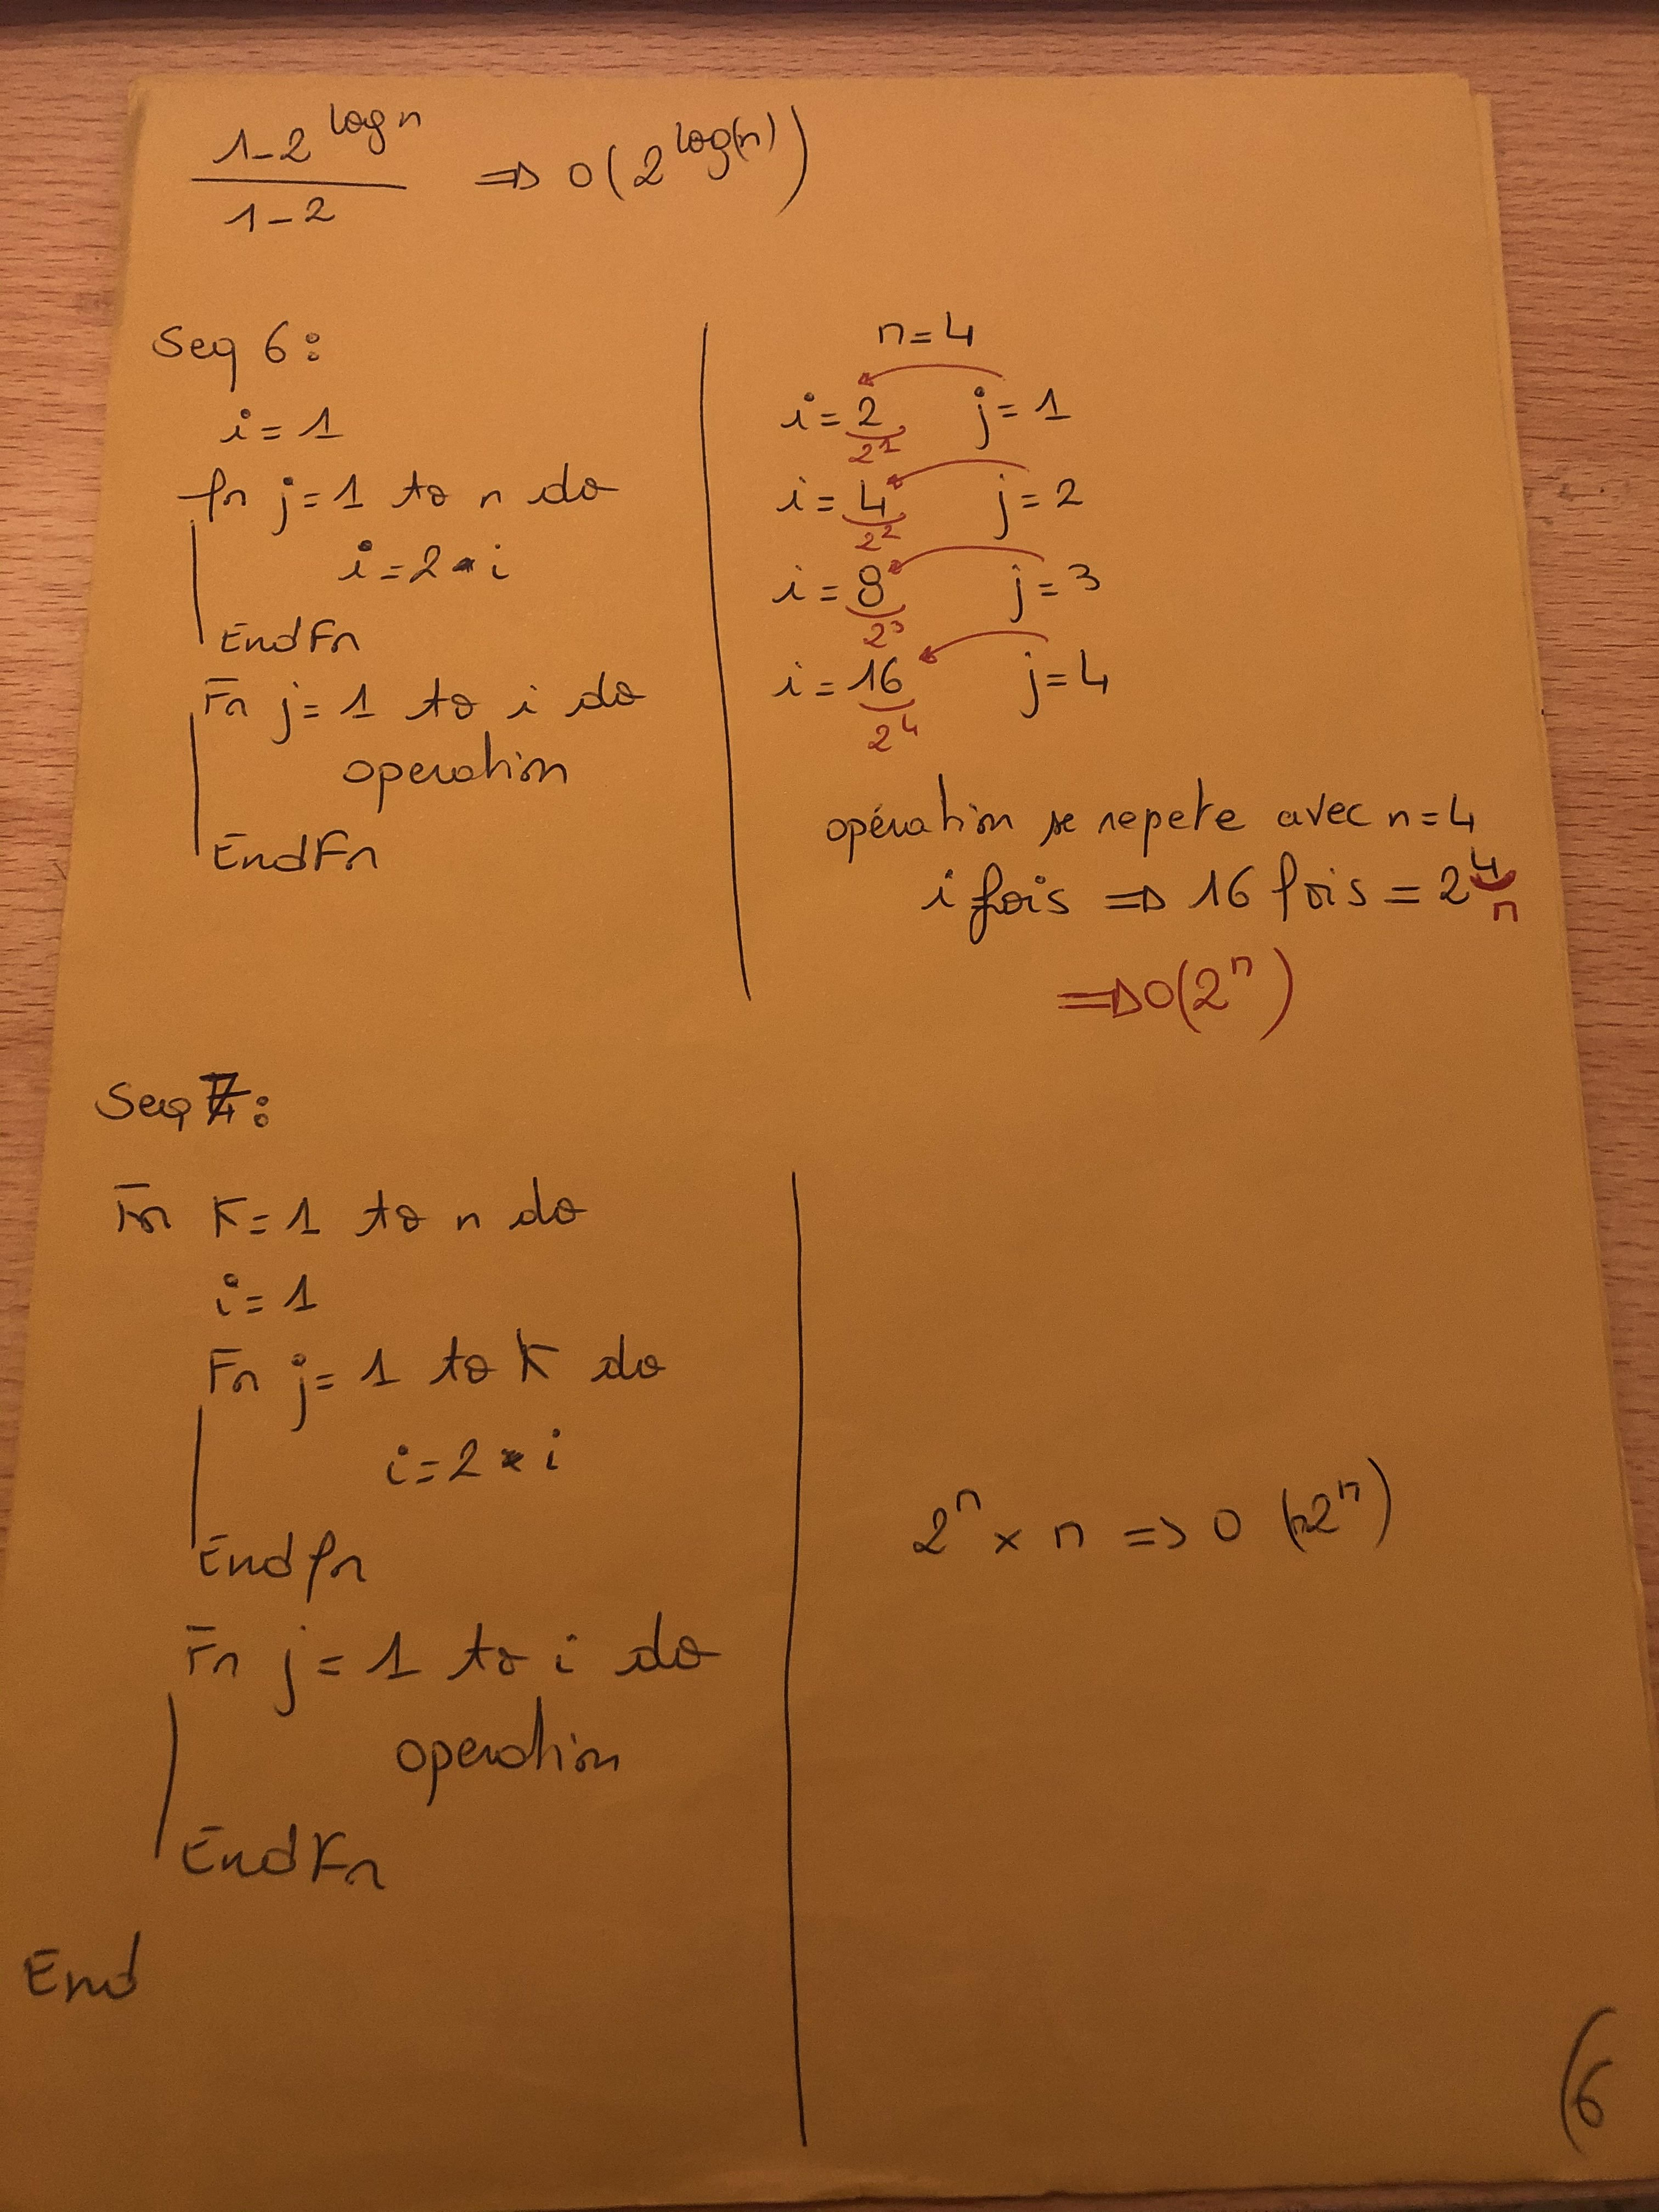 1-2^log n
/ 1-2 => O(2^log(n))
Seq 6:
i = 1
for j = 1 to n do
i = 2 * i
EndFor
For j = 1 to i do
operation
EndFor
n = 4
i = 2 j = 1
2^1
i = 4 j = 2
2^2
i = 8 j = 3
2^3
i = 16 j = 4
2^4
opération se repete avec n = 4
i fois => 16 fois = 2^4
n
=> O(2^n)
Seq 7:
For K = 1 to n do
i = 1
For j = 1 to K do
i = 2 * i
Endfor
For j = 1 to i do
operation
EndFor
End
2^n × n => O (n2^n)
6